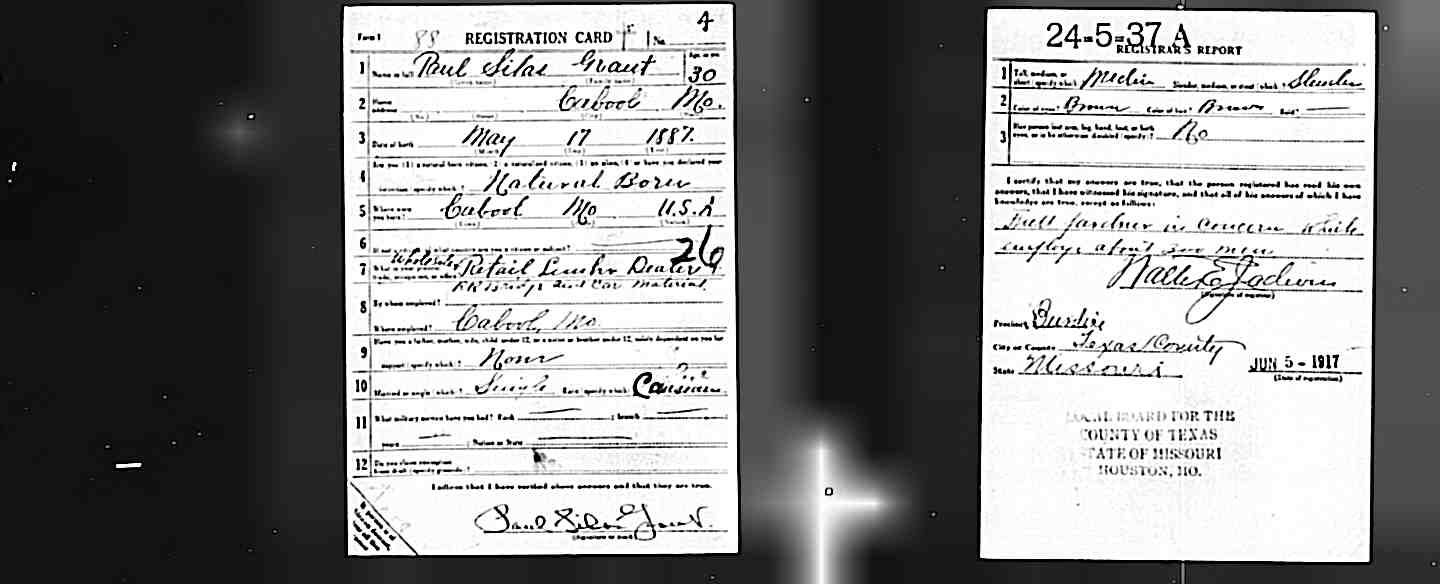 4
Form 1 88 REGISTRATION CARD No.
1 Name in full Paul Silas Grant Age, in yrs. 30
(Given name) (Family name)
2 Home address Cabool Mo.
(No.) (Street) (City) (State)
3 Date of birth May 17 1887.
(Month) (Day) (Year)
4 Are you (1) a natural born citizen, (2) a naturalized citizen, (3) an alien, (4) or have you declared your
intention (specify which)? Natural Born
5 Where were you born? Cabool Mo U.S.A
(Town) (State) (Nation)
6 If not a citizen, of what country are you a citizen or subject?
26
Wholesale
7 What is your present trade, occupation, or office? Retail Lumber Dealer
RR Bridge and Car Material.
8 By whom employed?
Where employed? Cabool, Mo.
9 Have you a father, mother, wife, child under 12, or a sister or brother under 12, solely dependent on you for
support (specify which)? None
10 Married or single (which)? Single Race (specify which)? Caucasian
11 What military service have you had? Rank ; branch
years ; Nation or State
12 Do you claim exemption from draft (specify grounds)?
I affirm that I have verified above answers and that they are true.
Paul Silas Grant.
(Signature or mark)
24-5-37 A
REGISTRAR'S REPORT
1 Tall, medium, or short (specify which)? Medium Slender, medium, or stout (which)? Slender
2 Color of eyes? Brown Color of hair? Brown Bald?
3 Has person lost arm, leg, hand, foot, or both eyes, or is he otherwise disabled (specify)? No
I certify that my answers are true, that the person registered has read his own
answers, that I have witnessed his signature, and that all of his answers of which I have
knowledge are true, except as follows:
in concern While
employs about 200 men
(Signature of registrar)
Precinct Burdine
City or County Texas County
State Missouri JUN 5 - 1917
(Date of registration)
LOCAL BOARD FOR THE
COUNTY OF TEXAS
STATE OF MISSOURI
HOUSTON, MO.